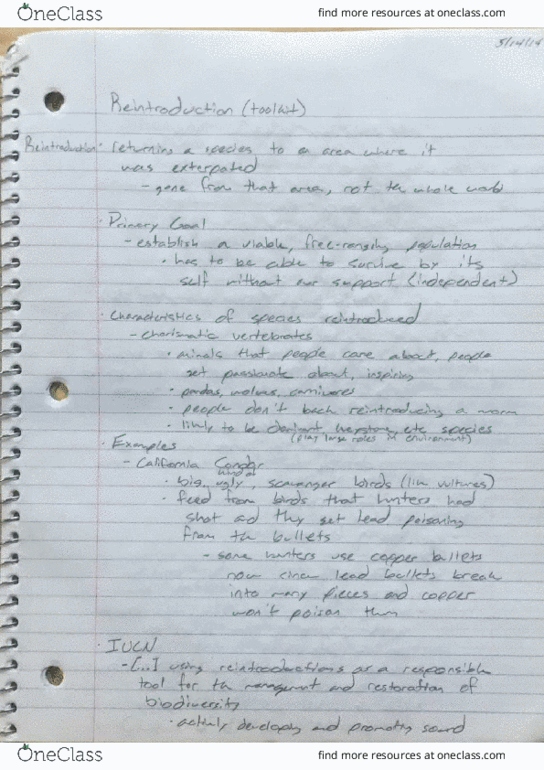 OneClass find more resources at oneclass.com
5/14/14
Reintroduction (toolkit)
Reintroduction: returning a species to a area where it
was exterpated
- gone from that area, not the whole world
· Primary Goal
- establish a viable, free-ranging population
· has to be able to survive by its
self without our support (independent)
· Characteristics of species reintroduced
- charismatic vertebrates
· animals that people care about, people
get passionate about, inspiring
· pandas, wolves, carnivores
· people don't back reintroducing a worm
· likely to be dominant, keystone, etc species
(play large roles in environment)
· Examples
- California Condor
· big, kind of ugly, scavenger birds (like vultures)
· feed from birds that hunters had
shot and they get lead poisoning
from the bullets
- some hunters use copper bullets
now since lead bullets break
into many pieces and copper
won't poison them
· IUCN
- [...] using reintroductions as a responsible
tool for the management and restoration of
biodiversity
· actively developing and promoting sound
OneClass find more resources at oneclass.com